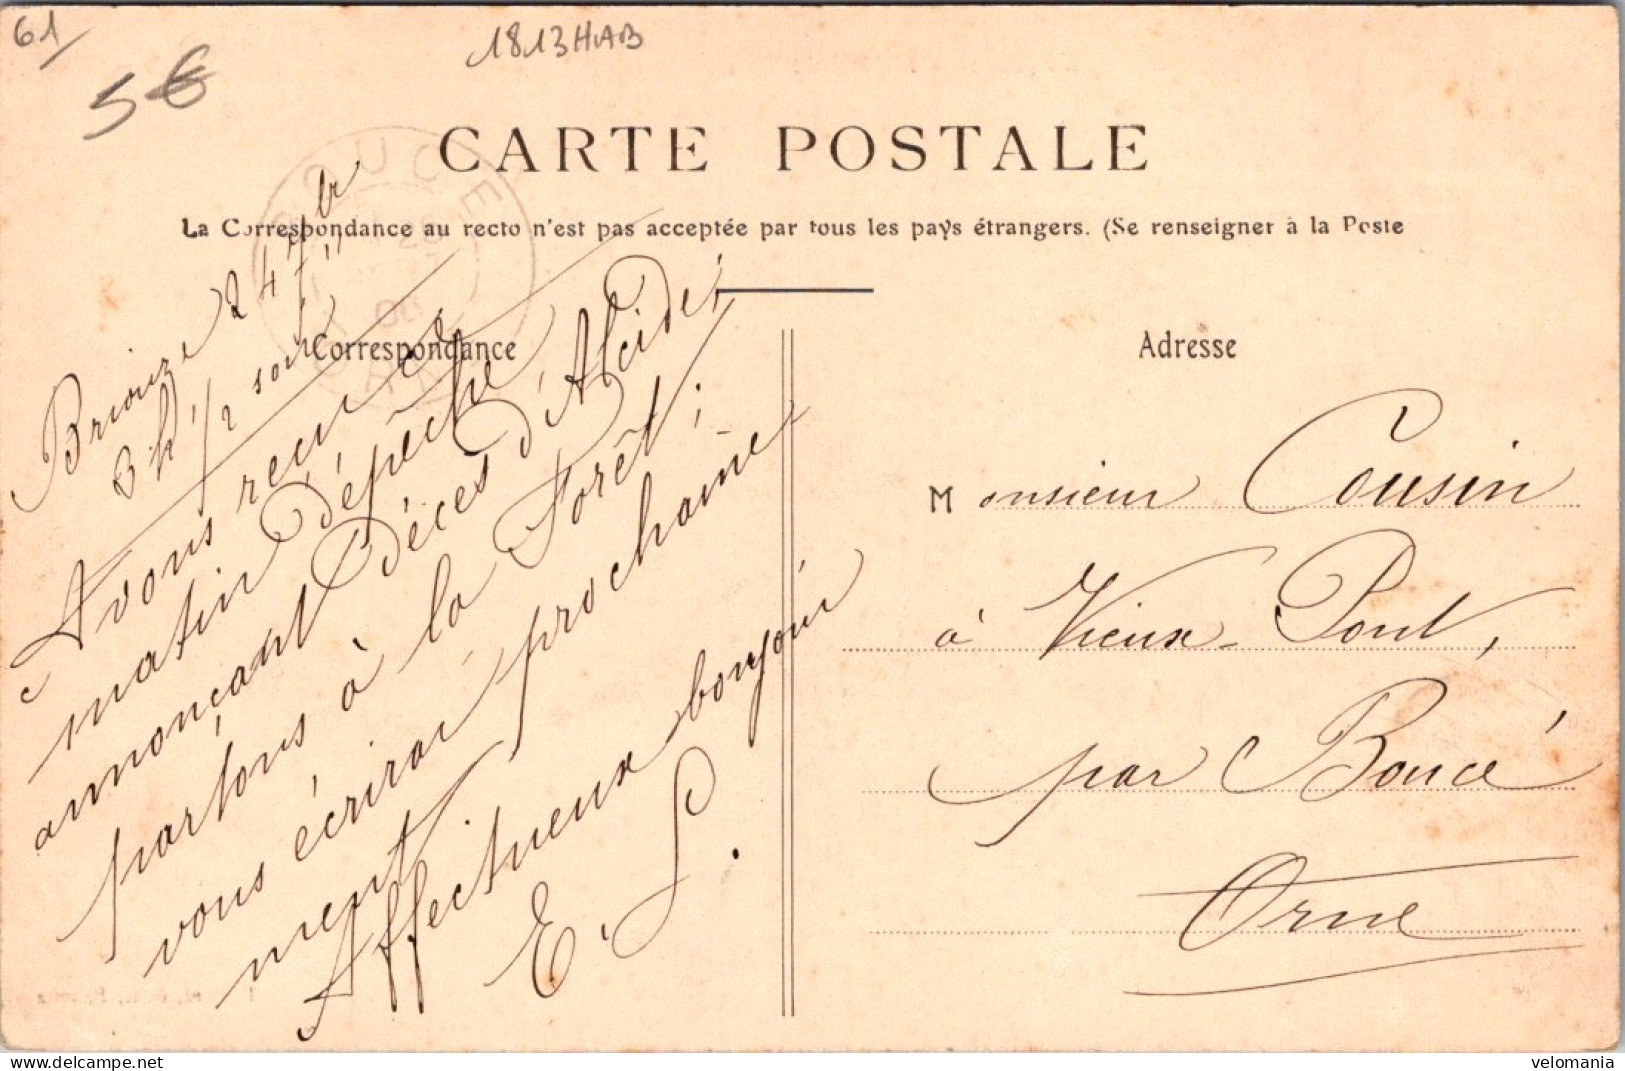 61
5€
1813HAB
CARTE POSTALE
La Correspondance au recto n'est pas acceptée par tous les pays étrangers. (Se renseigner à la Poste
Correspondance
Briouze 24 7bre
3h 1/2 soir
Avons reçu ce
matin dépêche
annonçant décès d'Alcide;
partons à la Forêt;
vous écrirai prochaine-
ment
Affectueux bonjour
E. L.
Adresse
Monsieur Cousin
à Vieux-Pont,
par Boucé
Orne
velomania